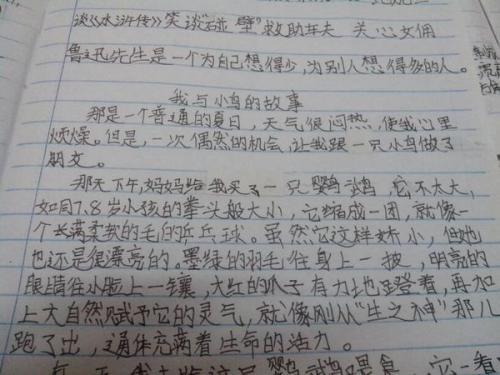 谈《水浒传》笑谈“碰壁”救助车夫 关心女佣
鲁迅先生是一个为自己想得少,为别人想得多的人。
我与小鸟的故事
那是一个普通的夏日,天气很闷热,使我心里
烦燥。但是,一次偶然的机会,让我跟一只小鸟做了
朋友。
那天下午,妈妈给我买了一只鹦鹉,它不太大,
如同7.8岁小孩的拳头般大小,它缩成一团,就像一
个长满柔软的毛的乒乓球。虽然它这样娇小,但她
也还是很漂亮的。墨绿的羽毛往身上一披,明亮的
眼睛往小脸上一镶,大红的爪子有力地蹬着,再加
上大自然赋予它的灵气,就像刚从“生之神”那儿
跑了出,通体充满着生命的活力。